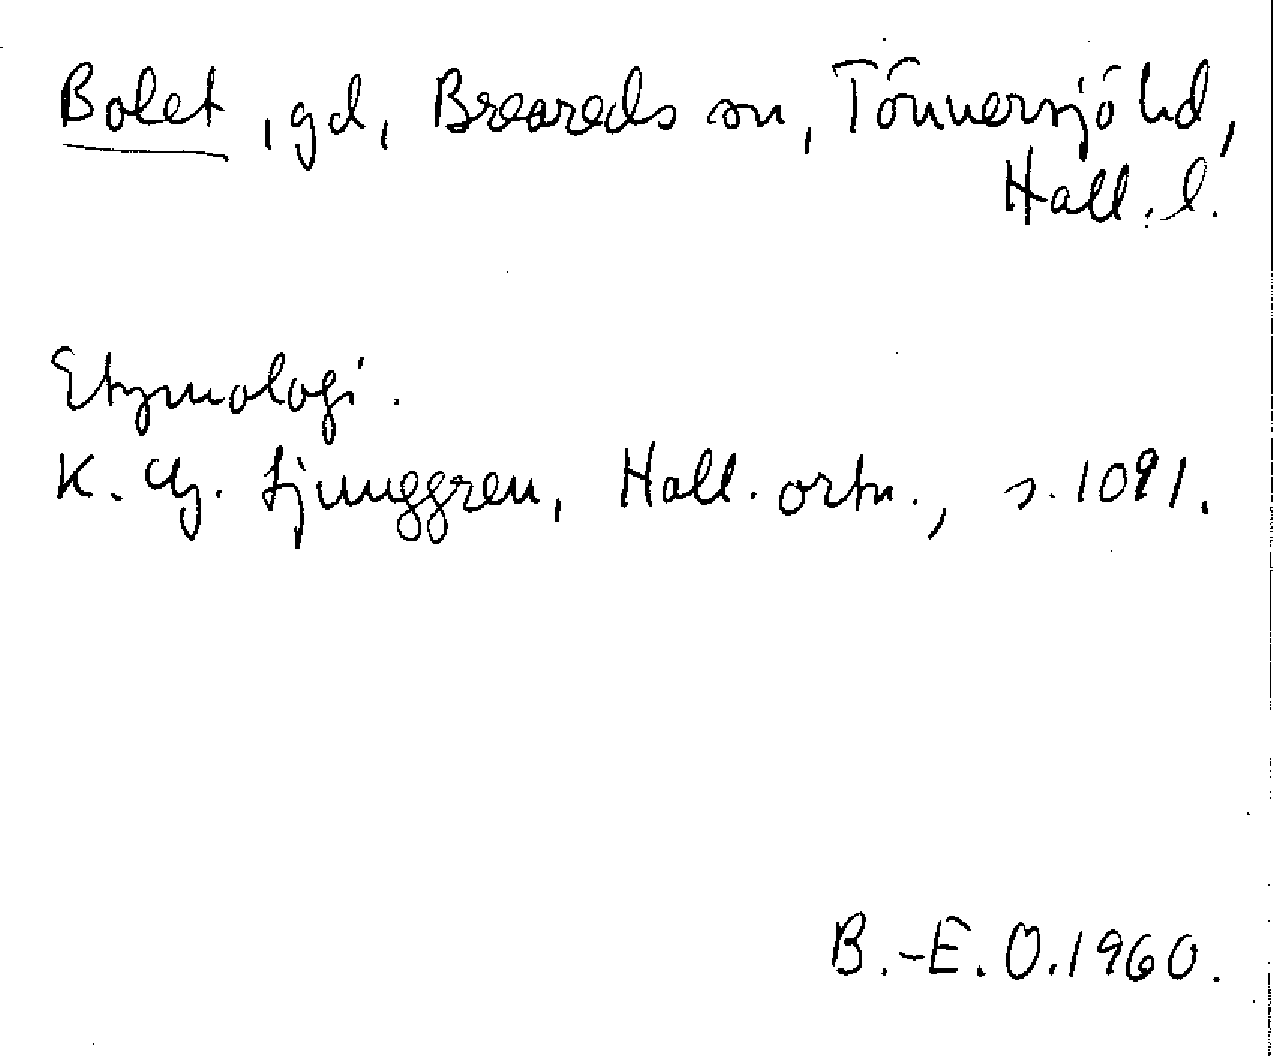 Bolet, gd, Breareds sn, Tönnersjö hd,
Hall. l.
Etymologi.
K. G. Ljunggren, Hall. ortn., s. 1091.
B.-E. O. 1960.